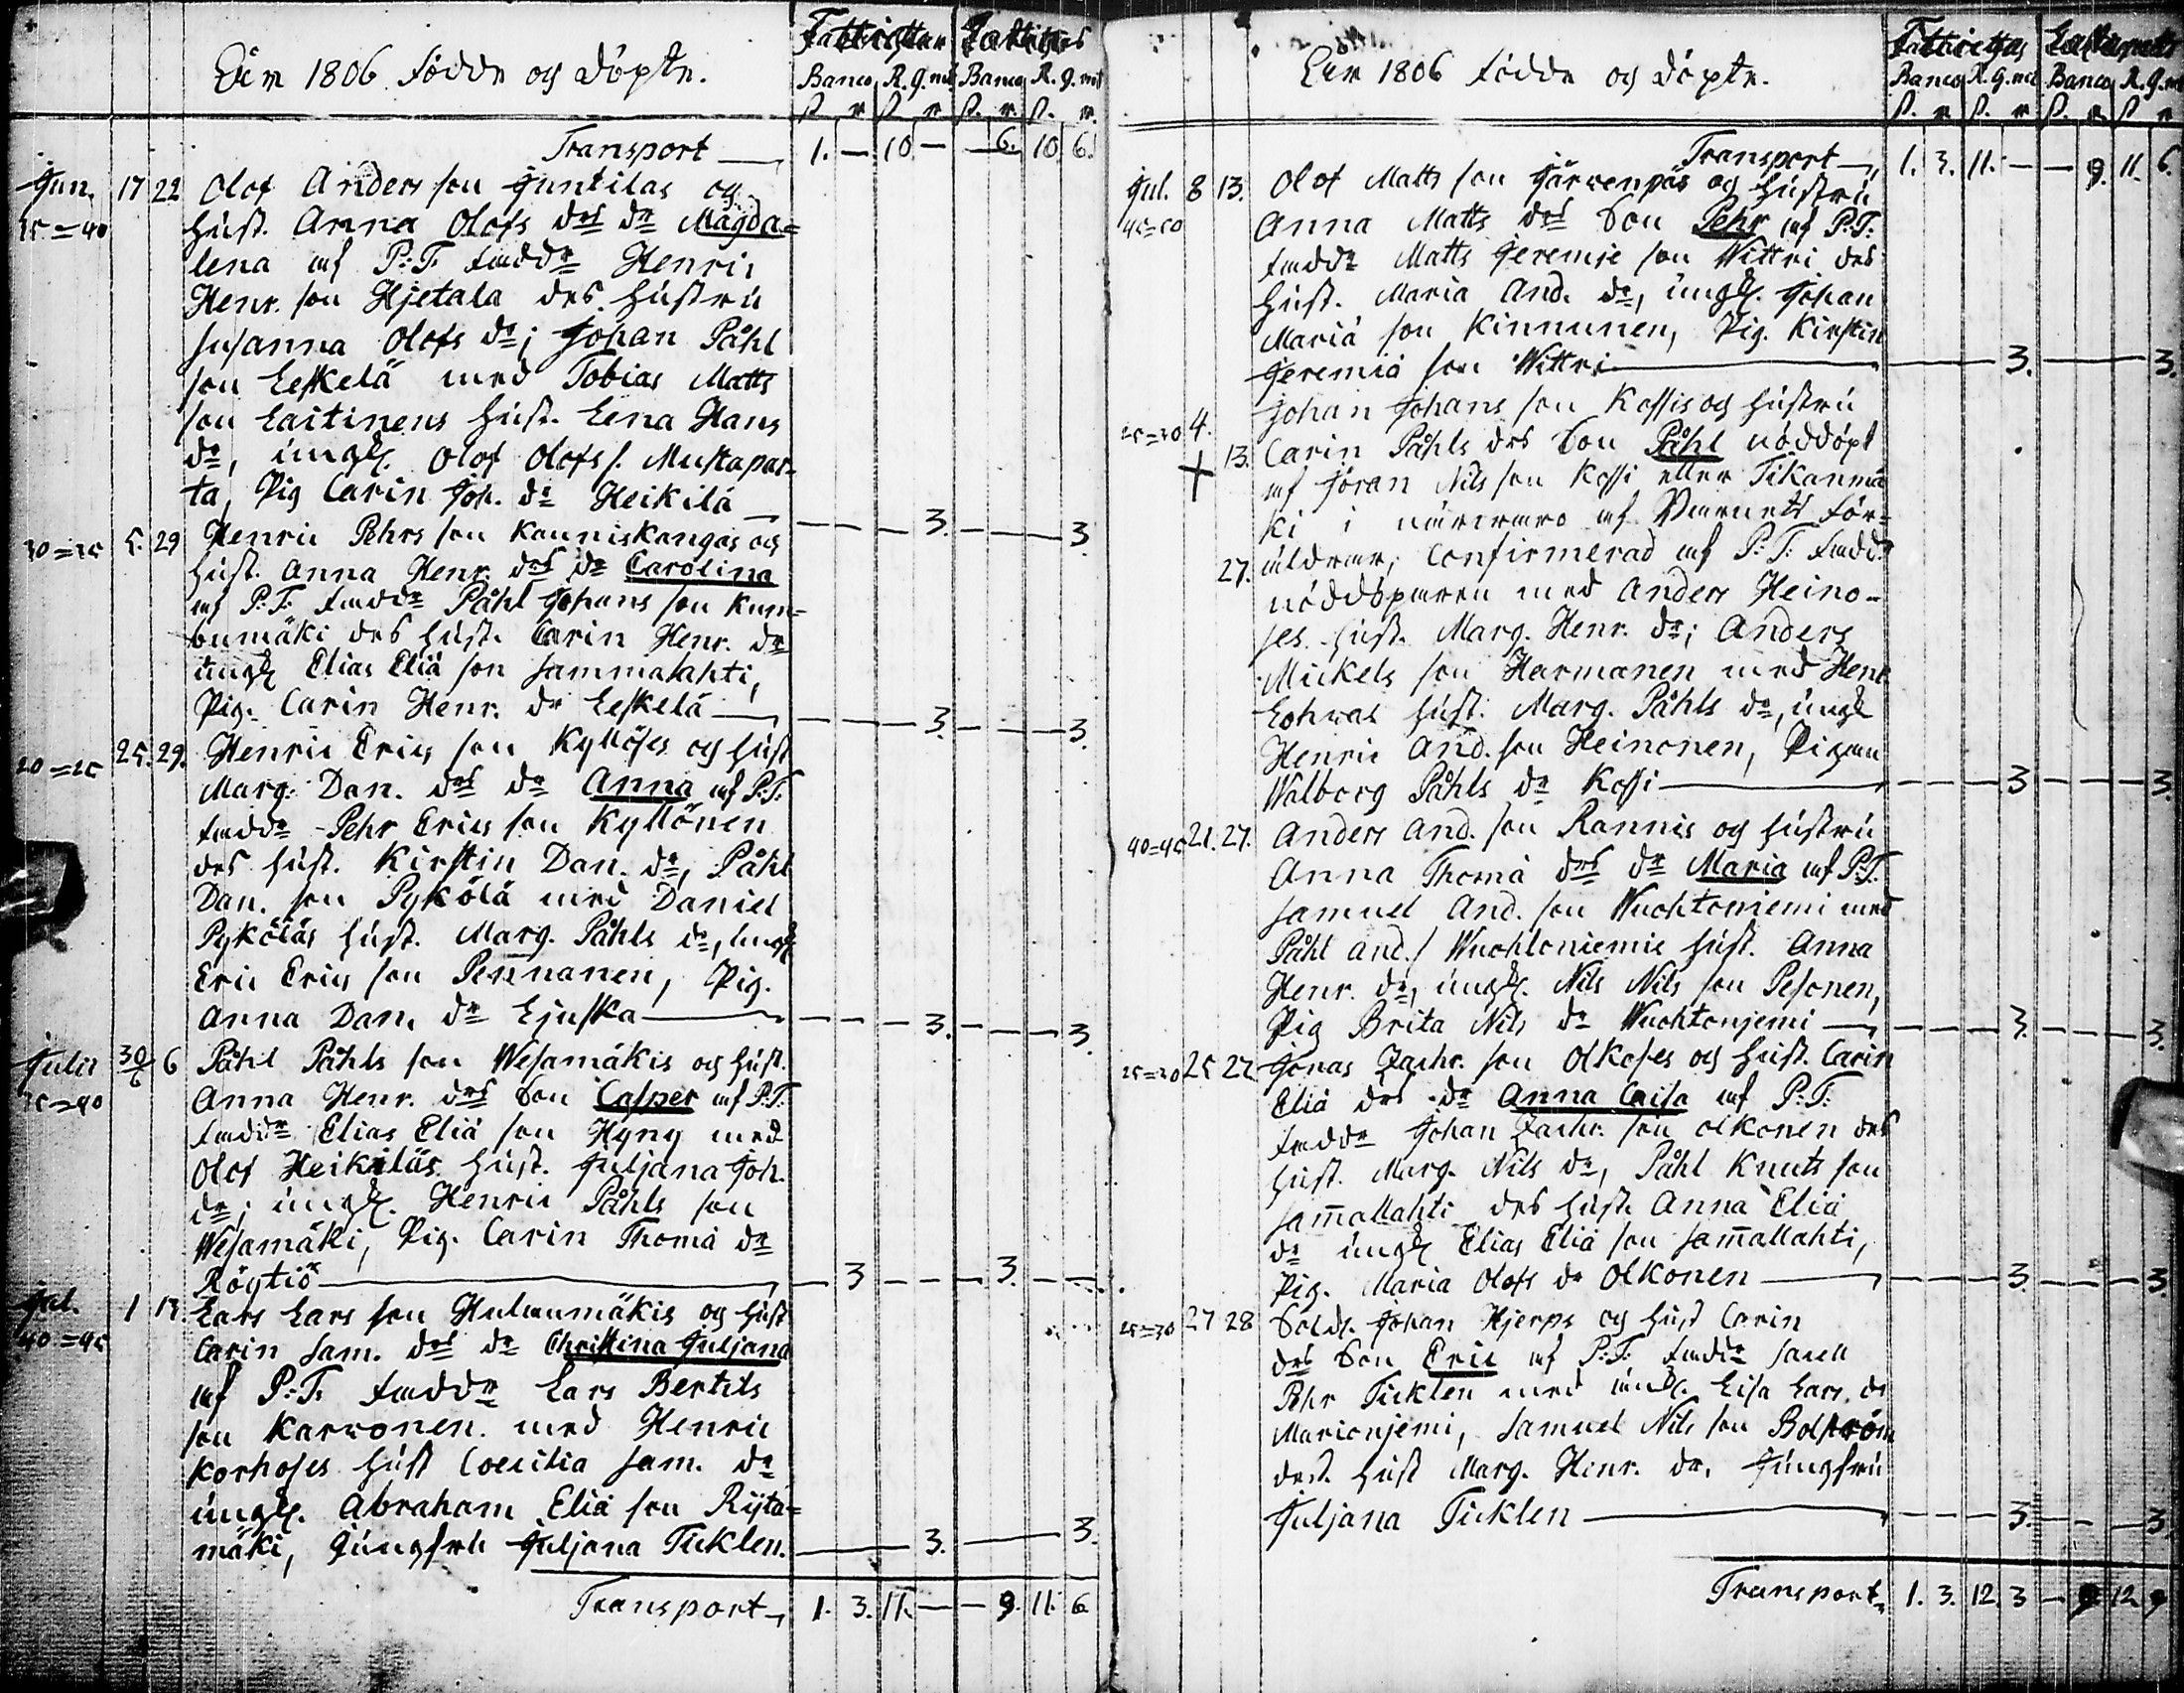 1806 födde og döpte.
Fattigas
Banco R. g. mt Banco R. g. mt
Transport 1. — 10 — — 6. 10 6.
Jun. 17 22 Olof Anders son Juntilas og
35=40 hust. Anna Olofs des dr Magda=
lena af P:T: faddr Henric
Henr. son Hjetala des hustru
Susanna Olofs dr; Johan Påhl
son Leskelä med Tobias Matts
son Laitinens hust. Lena Hans
dr, ungk. Olof Olofs s. Mustapar=
ta, Pig Carin Joh. dr Heikilä — 3. — 3.
5. 29 Henric Pehrs son Kauniskangas og
hust. Anna Henr. des dr Carolina
af P:T: faddr Påhl Johans son Kum=
bumäki des hust. Carin Henr. dr
ungk Elias Eliä son Sammalahti,
Pig. Carin Henr. dr Leskelä — 3. — 3.
20=25 25. 29. Henric Erics son Kyllöses og hust
Marg. Dan. des dr Anna af P:T:
faddr Pehr Erics son Kyllönen
des hust. Kirstin Dan. dr, Påhl
Dan. son Pykölä med Daniel
Pyköläs hust. Marg. Påhls dr, ungk
Eric Erics son Pennanen, Pig.
Anna Dan. dr Ljuska — 3. — 3.
Julii 30/6 6 Påhl Påhls son Wesamäkis og hust.
35=40 Anna Henr. des Son Casper af P:T:
faddr Elias Eliä son Hyny med
Olof Heikiläs hust. Juljana Joh.
dr; ungk. Henric Påhls son
Wesamäki, Pig. Carin Thomä dr
Röytiö — 3 — 3.
Jul. 1 13. Lars Lars son Hulmumäkis og hust
40=45 Carin Sam. des dr Christina Juljana
af P:T: faddr Lars Bertils
son Karvonen med Henric
Korhoses hust Coecilia Sam. dr
ungk. Abraham Eliä son Ryta=
mäki, Jungfru Juljana Ticklen. — 3. — 3.
Transport 1. 3. 11. — — 9. 11. 6
1806 födde og döpte.
Fattigas
Banco R. g. mt Banco R. g. mt
Transport 1. 3. 11. — — 9. 11. 6.
Jul. 8 13. Olof Matts son Järvenpäs og hustru
45=50 Anna Matts des Son Pehr af P:T:
faddr Matts Jeremie son Wittri des
hust. Maria And. dr, ungk. Johan
Mariä son Kinnunen, Pig. Kirstin
Jeremiä son Wittri — 3. — 3.
25=30 4. Johan Johans son Kossis og hustru
+ 13. Carin Påhls des Son Påhl nöddöpt
af Jöran Nils son Kossi eller Tikanmä
ki i närvaro af Barnets för=
27. äldrar; Confirmerad af P:T: faddr
nöddöparen med Anders Heino=
ses hust. Marg. Henr. dr; Anders
Mickels son Harmanen med Henr
Lohvas hust. Marg. Påhls dr, ungk
Henric And. son Heinonen, Pigan
Walborg Påhls dr Kossi — 3 — 3.
40=45 21. 27. Anders And. son Rannis og hustru
Anna Thomä des dr Maria af P:T:
Samuel And. son Wuohtoniemi med
Påhl And. s Wuohtoniemis hust. Anna
Henr. dr, ungk. Nils Nils son Pesonen,
Pig Brita Nils dr Wuohtonjemi — 3. — 3.
25=30 25 27 Jonas Zachr. son Olkoses og hust. Carin
Eliä des dr Anna Caisa af P:T:
faddr Johan Zachr. son Olkonen des
hust. Marg. Nils dr, Påhl Knuts son
Sam̄allahti des hust. Anna Eliä
dr ungk Elias Eliä son Sam̄allahti,
Pig. Maria Olofs dr Olkonen — 3. — 3
25=30 27 28 Sold. Johan Hjerps og hust Carin
des Son Eric af P:T: faddr
Pehr Ticklen med Lisa Lars. dr
Marionjemi, Samuel Nils son Bolström
des hust Marg. Henr. dr, Jungfru
Juljana Ticklen — 3. — 3
Transport 1. 3. 12. 3 — 9 12. 9